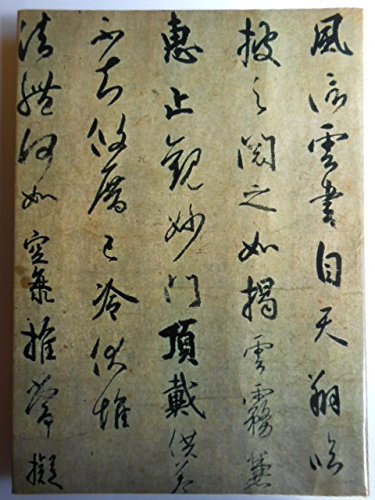 風信雲書自天翔臨
披之閲之如掲雲霧兼
恵止観妙門頂戴供養
不知攸厝已冷伏惟
法體何如空海推常擬